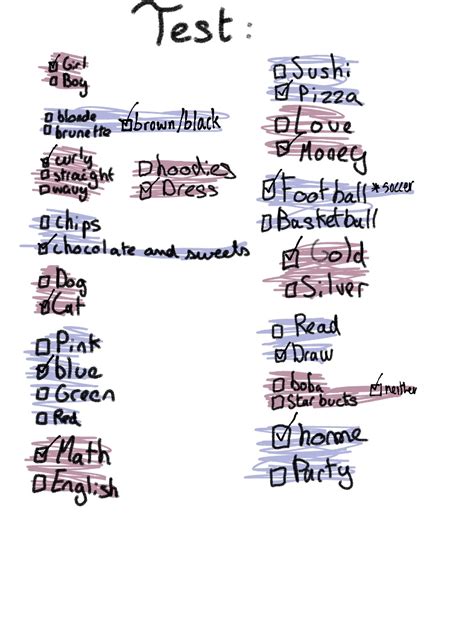 Test:
Girl
Boy
blonde
brunette
brown/black
curly
straight
wavy
hoodies
Dress
chips
chocolate and sweets
Dog
Cat
Pink
blue
Green
Red
Math
English
Sushi
Pizza
Love
Money
Football *soccer
Basketball
Gold
Silver
Read
Draw
boba
Starbucts
neither
home
Party